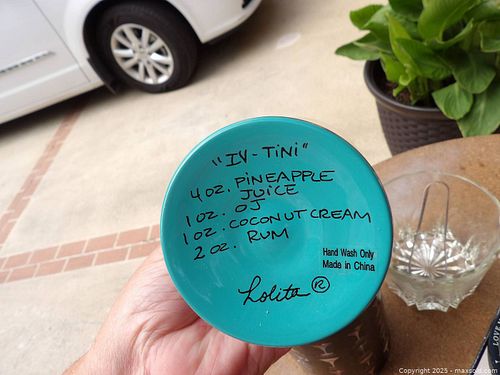 "IV-TINI"
4 OZ. PINEAPPLE
JUICE
1 OZ. OJ
1 OZ. COCONUT CREAM
2 OZ. RUM
Hand Wash Only
Made in China
Lolita®
LOVE
Copyright 2025 - maxsold.com